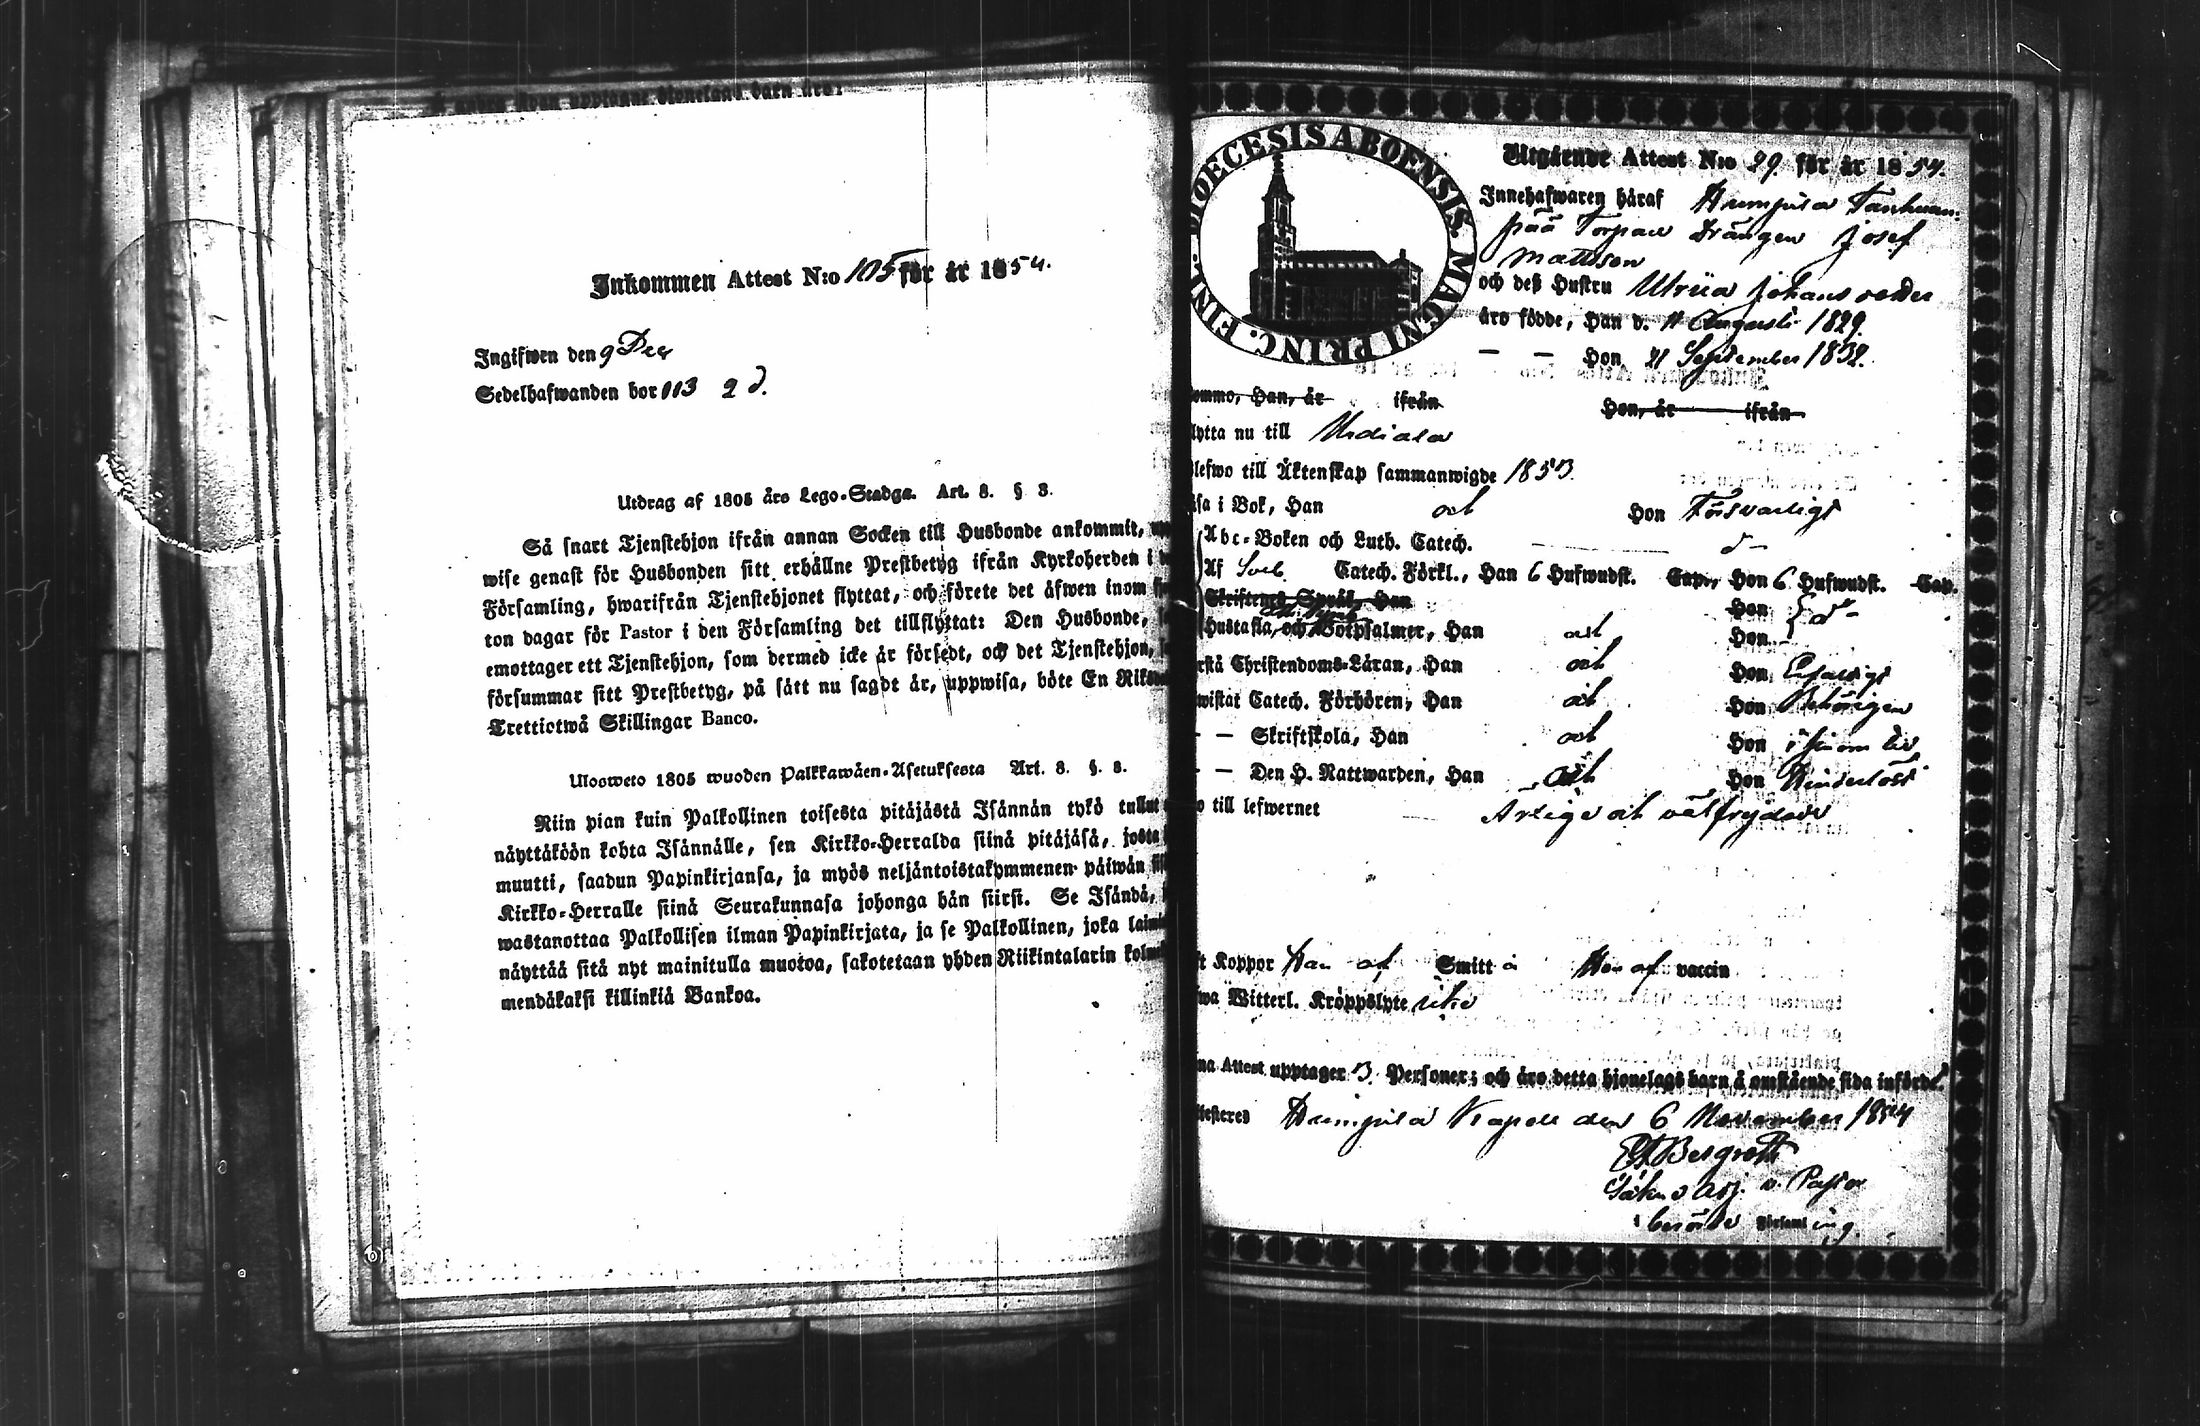 Inkommen Attest N:o 105 för år 1854.
Ingifwen den 9 Dec
Sedelhafwanden bor 113 2 d.
Utdrag af 1805 års Lego-Stadga. Art. 8. § 3.
Så snart Tjenstehjon ifrån annan Socken till Husbonde ankommit,
wise genast för Husbonden sitt erhållne Prestbetyg ifrån Kyrkoherden i
Församling, hwarifrån Tjenstehjonet flyttat, och förete det äfwen inom
ton dagar för Pastor i den Församling det tillflyttat: Den Husbonde,
emottager ett Tjenstehjon, som dermed icke är försedt, och det Tjenstehjon,
försummar sitt Prestbetyg, på sätt nu sagdt är, uppwisa, böte En
Trettiotwå Skillingar Banco.
Ulosweto 1805 wuoden Palkkawäen-Asetuksesta Art. 8. §. 3.
Niin pian kuin Palkollinen toisesta pitäjästä Isännän tykö tullut
näyttäköön kohta Isännälle, sen Kirkko-Herralda siinä pitäjäsä, josta
muutti, saadun Papinkirjansa, ja myös neljäntoistakymmenen päiwän
Kirkko-Herralle siinä Seurakunnasa johonga hän siirst. Se Isändä,
wastanottaa Palkollisen ilman Papinkirjata, ja se Palkollinen, joka
näyttää sitä nyt mainitulla muotoa, sakotetaan yhden Riikintalarin
mendäkaksi killinkiä Bankoa.
DIOECESIS ABOENSIS. MAGNI PRINC. FINL.
Utgående Attest N:o 99. för år 1854.
Innehafwaren häraf Humpila
Torpare Drängen Josef
Mattsson
och deß Hustru Ulrica Johansdotter
äro födde, Han d. 11 Augusti 1829.
— — Hon 21 September 1832.
Han, år ifrån Hon, år ifrån
nu till Urdiala
till Äktenskap sammanwigde 1853.
i Bok, Han och Hon Försvarligt
Abc-Boken och Luth. Catech. d-
Af Sveb. Catech. Förkl., Han 6 Hufwudst. Cap., Hon 6 Hufwudst. Cap.
Skriftenes Språk, Han Hon
Hustafla, och Botpsalmer, Han och Hon d-
Christendoms-Läran, Han och Hon
Catech. Förhören, Han och Hon Behörigen
— — Skriftskola, Han och Hon
— — Den H. Nattwarden, Han och Hon Hinderlöst
till lefwernet Ärlige och välfrejdade
Koppor Han af Smitta Hon af vaccin
Witterl. Kroppslyte icke
Attest upptager 3 Personer; och äro detta hjonelags barn å omstående sida införde.
Humpila Kapell den 6 November 1854
Bergroth
Adj. v. Pastor
i berörde Församling.